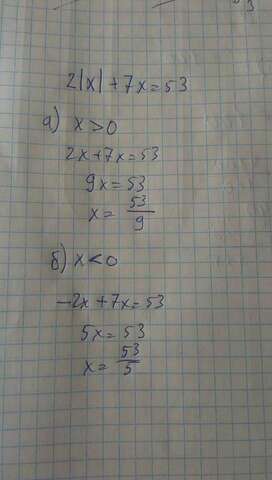 2|x| + 7x = 53
а) x > 0
2x + 7x = 53
9x = 53
x = 53/9
б) x < 0
-2x + 7x = 53
5x = 53
x = 53/5